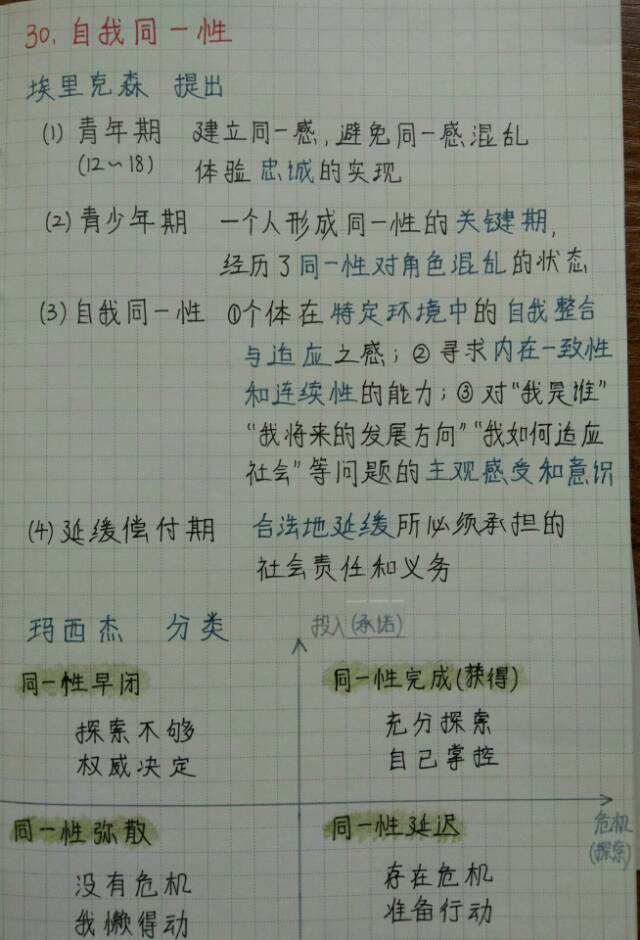 30. 自我同一性
埃里克森 提出
(1) 青年期 建立同一感, 避免同一感混乱
(12~18) 体验忠诚的实现
(2) 青少年期 一个人形成同一性的关键期,
经历了同一性对角色混乱的状态
(3) 自我同一性 ①个体在特定环境中的自我整合
与适应之感; ② 寻求内在一致性
和连续性的能力; ③ 对“我是谁”
“我将来的发展方向”“我如何适应
社会”等问题的主观感受和意识
(4) 延缓偿付期 合法地延缓所必须承担的
社会责任和义务
玛西杰 分类
投入(承诺)
同一性早闭 同一性完成(获得)
探索不够 充分探索
权威决定 自己掌控
危机
(探索)
同一性弥散 同一性延迟
没有危机 存在危机
我懒得动 准备行动